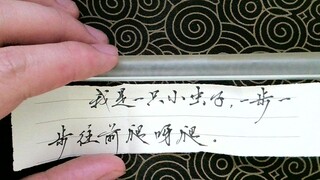 我是一只小虫子,一步一
步往前爬呀爬.